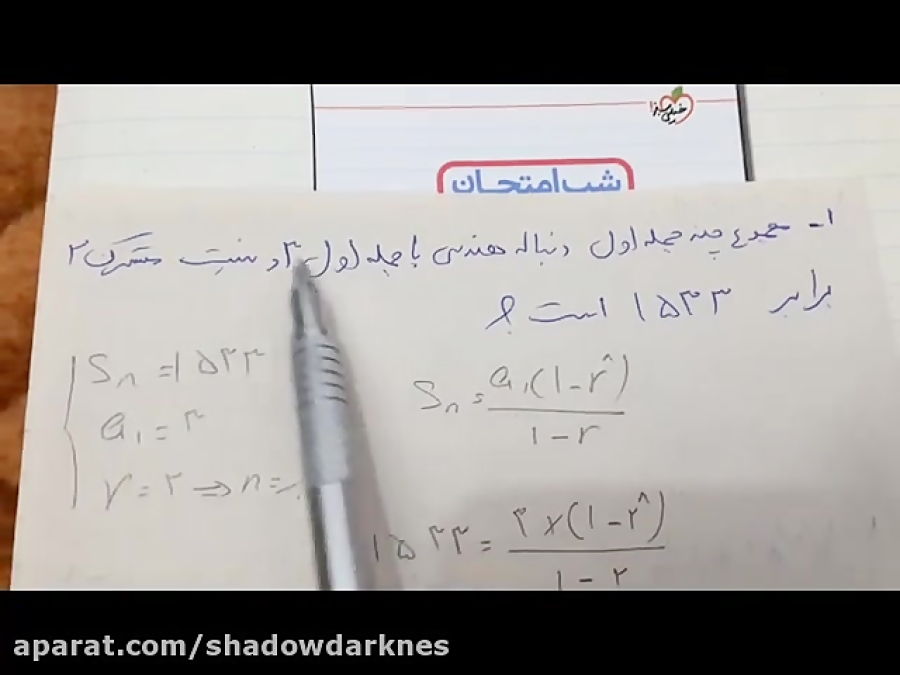 خیلی سبز
شب امتحان
۱- مجموع چند جمله اول دنباله هندسی با جمله اول ۳ و نسبت مشترک ۲
برابر ۱۵۳۳ است؟
Sn = ۱۵۳۳
a₁ = ۳
r = ۲ ⇒ n =
Sn = a₁(1 - rⁿ) / 1 - r
۱۵۳۳ = ۳ × (1 - ۲ⁿ) / 1 - ۲
aparat.com/shadowdarknes